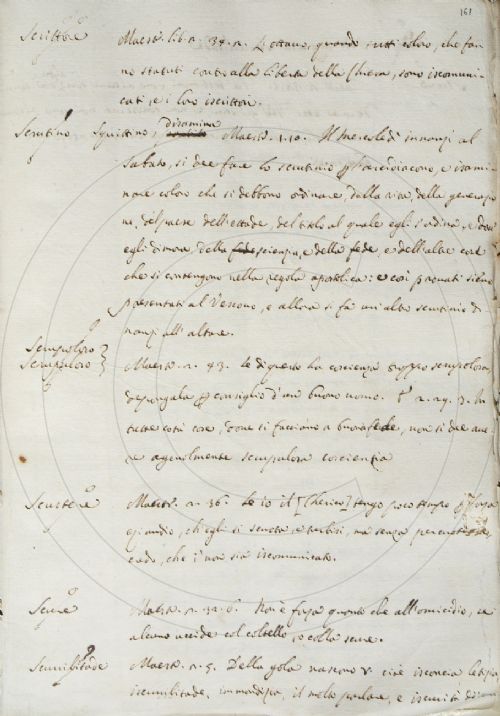 161
Scrittore Maestr. lib. 2. 34. 2. L'ottavo, quando tutti coloro, che fan-
no statuti contro alla libertà della Chiesa, sono iscomuni-
cati, e i loro iscrittori.
Scrutino Squittino, disamina Maestr. 1. 10. Il mercoledì innanzi al
Sabato, si dee fare lo scrutinio l'arcidiacono, e isami-
nare coloro che si debbono ordinare, della vita, della generazio-
ne, del paese dell'ettade, del titolo al quale egli s'ordina, e dove
egli dimora, della scienzia, e della fede, e dell'altre cose
che si contengono nella regola apostolica: e così provati sieno
presentati al Vescovo, e allora si fa un altro scrutinio di-
nanzi all'altare.
Scrupoloso
Scrupuloso Maestr. 2. 43. Se di questo ha coscienza troppo scrupolosa,
dipongala consiglio d'un buono uomo. E 2. 29. 3. In
tutte cotai cose, dove si facciano a buona fede, non si dee ave-
re agevolmente scrupolosa coscienzia
Scuotere Maestr. 2. 36. Se io il [Cherico] tengo poco tempo
eziandio, ch'egli si scuota, e turbisi, ma senza
che i' non sia iscomunicato.
Scure Maestr. 2. 32. 6. Non è forza quanto che all'omicidio, se
alcuno uccide col coltello o colla scure.
Scurrilitade Maestr. 2. 5. Della gola nascono V. cioè isconcia letizia,
iscurrilitade, immondizia, il molto parlare, e